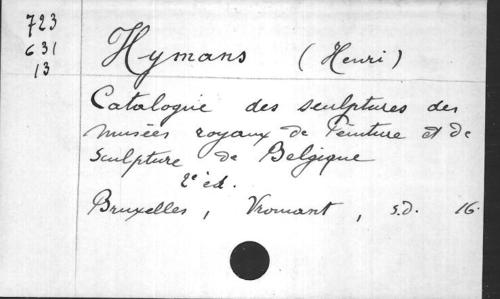 723
631
13
Hymans (Henri)
Catalogue des sculptures des
musées royaux de Peinture et de
Sculpture de Belgique
2e éd.
Bruxelles, Vromant, s.d. 16.